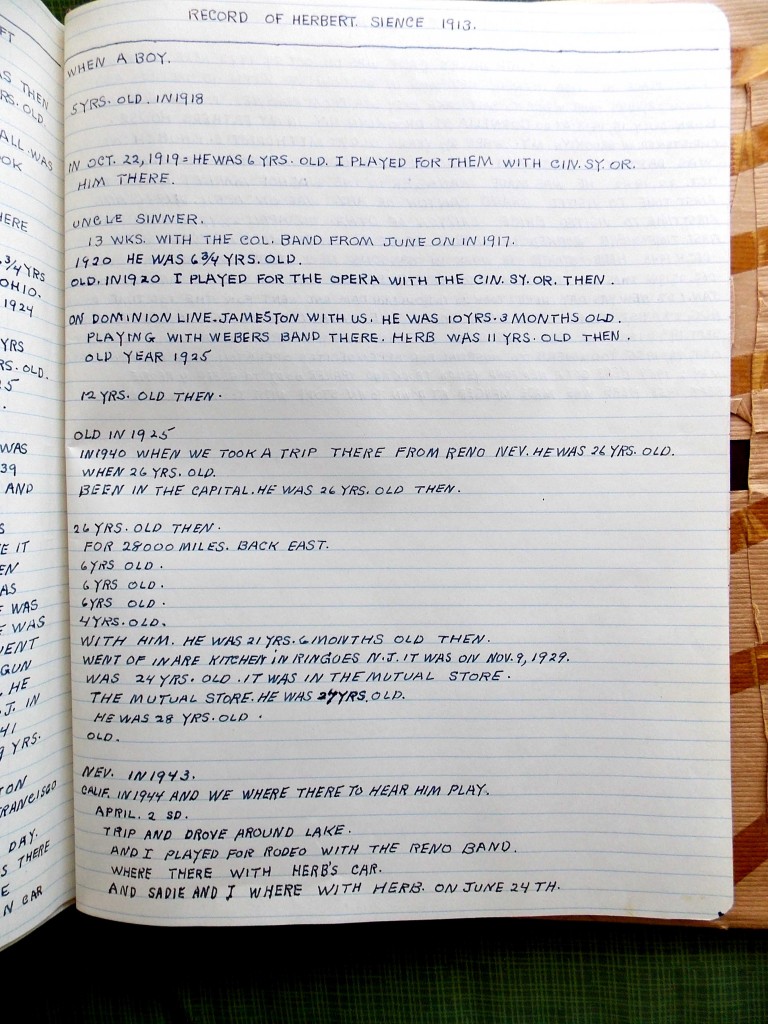 FT
S THEN
RS. OLD.
ALL WAS
OK
HERE
3/4 YRS
OHIO.
1924
YRS
RS. OLD.
25
.
WAS
39
AND
S
E IT
EN
AS
E WAS
E WAS
UENT
GUN
. HE
J. IN
41
9 YRS.
TON
FRANCISCO
DAY.
S THERE
E
N CAR
RECORD OF HERBERT. SIENCE 1913.
WHEN A BOY.
5 YRS. OLD. IN 1918
IN OCT. 22, 1919 = HE WAS 6 YRS. OLD. I PLAYED FOR THEM WITH CIN. SY. OR.
HIM THERE.
UNCLE SINNER.
13 WKS. WITH THE COL. BAND FROM JUNE ON IN 1917.
1920 HE WAS 6 3/4 YRS. OLD.
OLD. IN 1920 I PLAYED FOR THE OPERA WITH THE CIN. SY. OR. THEN.
ON DOMINION LINE. JAMESTON WITH US. HE WAS 10 YRS. 3 MONTHS OLD.
PLAYING WITH WEBERS BAND THERE. HERB WAS 11 YRS. OLD THEN.
OLD YEAR 1925
12 YRS. OLD THEN.
OLD IN 1925
IN 1940 WHEN WE TOOK A TRIP THERE FROM RENO NEV. HE WAS 26 YRS. OLD.
WHEN 26 YRS. OLD.
BEEN IN THE CAPITAL. HE WAS 26 YRS. OLD THEN.
26 YRS. OLD THEN.
FOR 28000 MILES. BACK EAST.
6 YRS OLD.
6 YRS OLD.
6 YRS OLD.
4 YRS. OLD.
WITH HIM. HE WAS 21 YRS. 6 MONTHS OLD THEN.
WENT OF IN ARE KITCHEN IN RINGOES N.J. IT WAS ON NOV. 9, 1929.
WAS 24 YRS. OLD. IT WAS IN THE MUTUAL STORE.
THE MUTUAL STORE. HE WAS 24 YRS. OLD.
HE WAS 28 YRS. OLD.
OLD.
NEV. IN 1943.
CALIF. IN 1944 AND WE WHERE THERE TO HEAR HIM PLAY.
APRIL. 2 SD.
TRIP AND DROVE AROUND LAKE.
AND I PLAYED FOR RODEO WITH THE RENO BAND.
WHERE THERE WITH HERB'S CAR.
AND SADIE AND I WHERE WITH HERB. ON JUNE 24 TH.